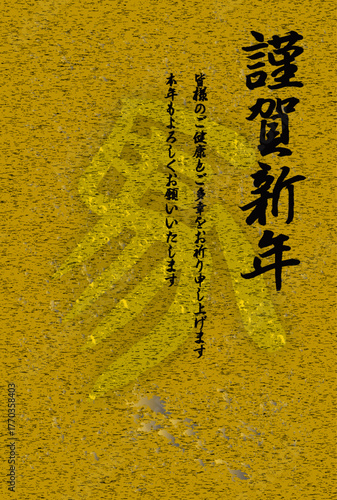 謹賀新年
皆様のご健康とご多幸をお祈り申し上げます
本年もよろしくお願いいたします
Adobe Stock | #1770358403